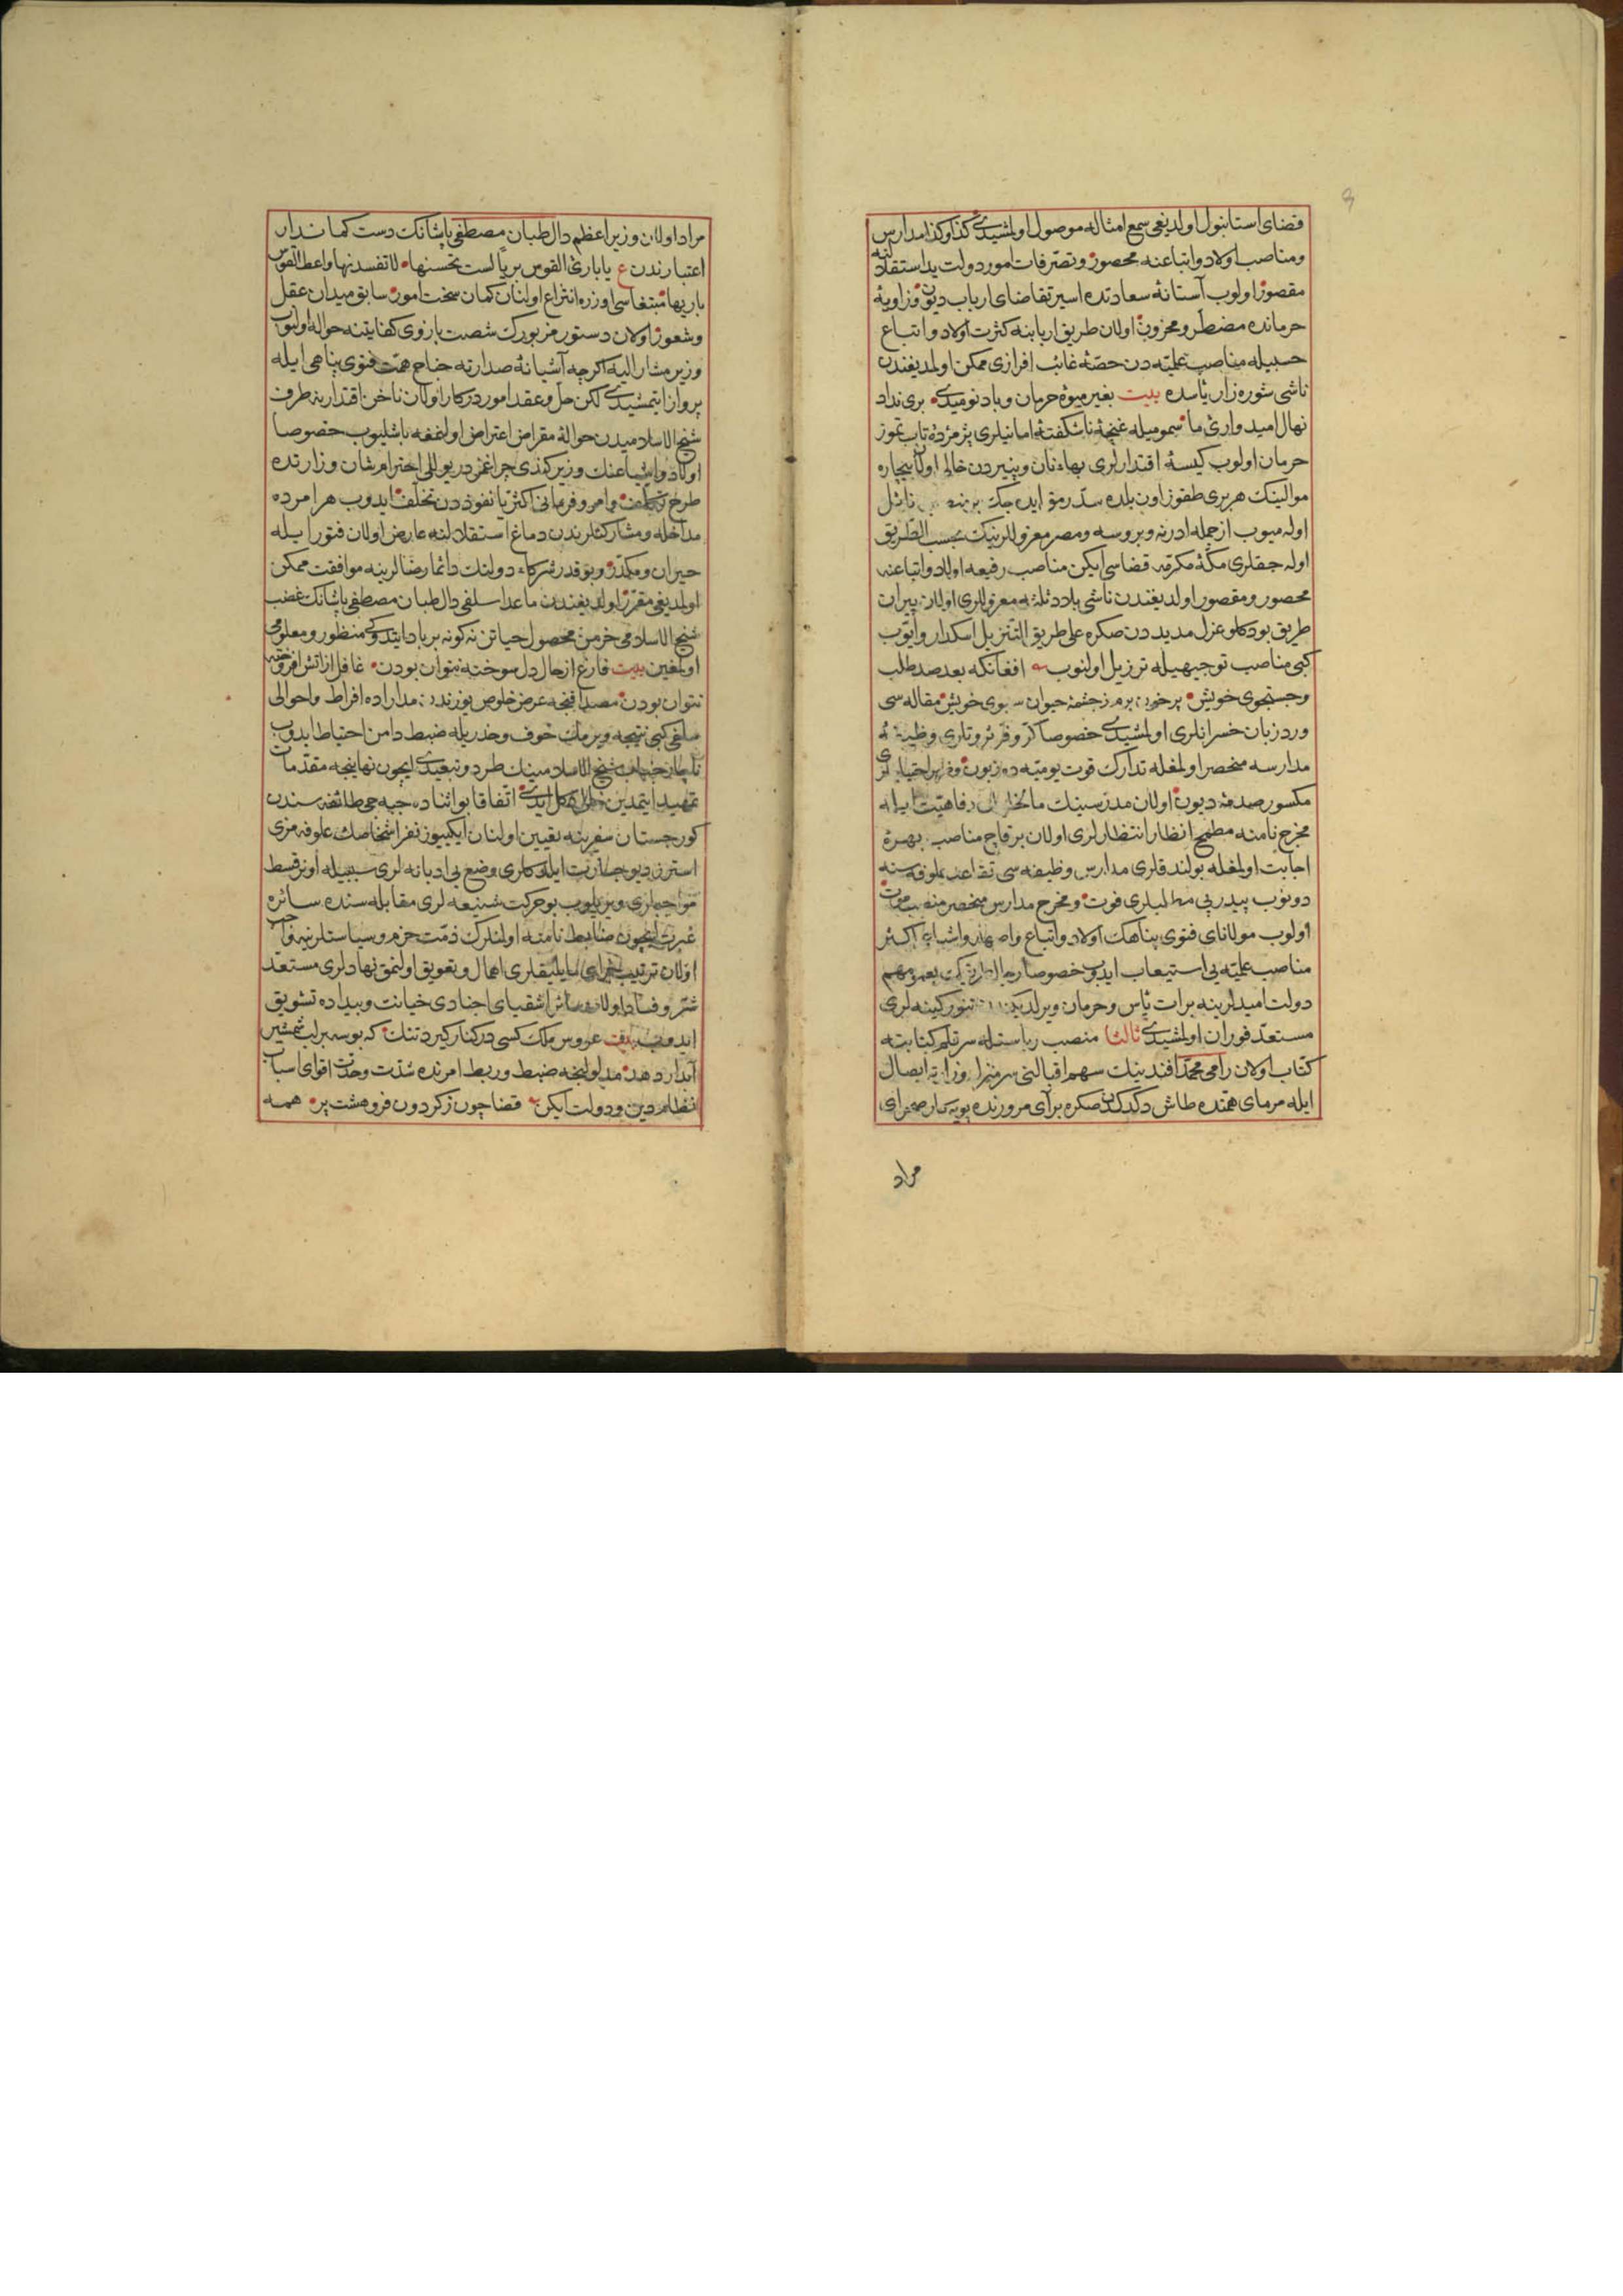 قضای استانبول اولدیغی سمع امثاله موصول اولمشیدی كذا وكذا مدارس
ومناصب اولاد واتباعنه محصور وتصرفات امور دولت ید استقلالنه
مقصور اولوب آستانهٔ سعادتده اسیر تقاضای ارباب دیون وزاویهٔ
حرمانده مضطر ومحزون اولان طریق اربابنه كثرت اولاد واتباع
حسبیله مناصب علمیه دن حصهٔ غائب افرازی ممكن اولمدیغندن
ناشی شوره زار یأسده بیت بغیر میوهٔ حرمان وباد نومیدی بری نداد
نهال امیدواری ما سمومیله غنچهٔ ناشكفتهٔ امانیلری پژمردهٔ تاب تموز
حرمان اولوب كیسهٔ اقتدارلری بهاء نان وپنیردن خالی اولان بیچاره
موالینك هر بری طقوز اون بلده سد رمق ایده جك بر نائل
اوله میوب از جمله ادرنه وبروسه ومصر معزوللرینك بحسب الطریق
اوله جقلری مكهٔ مكرمه قضاسی ایكن مناصب رفیعه اولاد واتباعنه
محصور ومقصور اولدیغندن ناشی بلاد ثلثه معزوللری اولان پیران
طریق بودكلو عزل مدیددن صكره علی طریق التنزیل اسكدار وایوب
كبی مناصب توجیهیله ترزیل اولنوب افغانكه بعد صد طلب
وجستجوی خویش پر خون برم ز چشمهٔ حیوان سبوی خویش مقاله سی
ورد زبان خسرانلری اولمشیدی خصوصا كر وفر ثروتلری وظیفهٔ
مدارسه منحصر اولمغله تدارك قوت یومیه ده زبون احتیاجلری
مكسور صدمهٔ دیون اولان مدرسینك رفاهیت ایله
مخرج نامنه مطمح انظار انتظارلری اولان برقاج مناصب بهرهٔ
اجابت اولمغله بولندقلری مدارس وظیفه سی تقاعد علوفه سنه
دونوب پیدرپی مطلبلری فوت ومخرج مدارس منحصر منصب موت
اولوب مولانای فتوی پناهك اولاد واتباع واصهار واشیاعی اكثر
مناصب علمیه یی استیعاب ایدوب خصوصا رجال طریقك
دولت امیدلرینه برات یأس وحرمان ویرلدیكندن تنور كینه لری
مستعد فوران اولمشیدی ثالثا منصب ریاستله سر قلم كتابته
كتاب اولان رامی محمد افندینك سهم اقبالنی سرمنزل وزارته ایصال
ایله مرمای همتده طاش دكدكدن صكره برآی مرورنده پویه كار صحرای
مراد
مراد اولان وزیر اعظم دال طبان مصطفی پاشانك دست كماندار
اعتبارندن ع یا باری القوس بریا لست تحسنها لا تفسدنها واعط القوس
باریها مبتغاسی اوزره انتزاع اولنان كمان سخت امور سابق میدان عقل
وشعور اولان دستور مزبورك شصت بازوی كفایتنه حواله اولنوب
وزیر مشار الیه اكرچه آشیانهٔ صدارته جناح همت فتوی پناهی ایله
پرواز ایتمشیدی لكن حل وعقد امور دركار اولان ناخن اقتدارینه طرف
شیخ الاسلامیدن حوالهٔ مقراض اعتراض اولنمغه باشلیوب خصوصا
اولاد واشیاعنك وزیر كندی چراغمزدر یوللی احترام شان وزارتده
طرح تكلف وامر وفرمانی اكثریا نفوذدن تخلف ایدوب هر امرده
مداخله ومشاركتلرندن دماغ استقلالنه عارض اولان فتور ایله
حیران ومكدر وبو قدر شركاء دولتك دائما رضالرینه موافقت ممكن
اولمدیغی مقرر اولدیغندن ماعدا سلفی دال طبان مصطفی پاشانك غضب
شیخ الاسلامی خرمن محصول حیاتن نه كونه برباد ایتدوكی منظور ومعلومی
اولمغین بیت فارغ از حال دل سوخته نتوان بودن غافل از آتش افروخته
نتوان بودن مصداقنجه عرض خلوص یوزندن مداراده افراط واحوالی
سلفی كبی نتیجه ویرمك خوف وحذریله ضبط دامن احتیاط ایدوب
ناچار جناب شیخ الاسلامینك طرد وتبعیدی ایچون نهانیجه مقدمات
تمهید ایتمدین خالی دكل ایدی اتفاقا بو اثناده جبه جی طائفه سندن
كورجستان سفرینه تعیین اولنان ایكیوز نفر اشخاصك علوفه مزی
استرز دیو جسارت ایلدكلری وضع بی ادبانه لری سببیله اونر قسط
مواجبلری ویریلوب بو حركت شنیعه لری مقابله سنده سائره
عبرت ایچون ضابط نامنه اولنلرك ذمت حزم وسیاستلرینه واجب
اولان ترتیب اهمال وتعویق اولنمق نهادلری مستعد
شر وفساد اولان سائر اشقیای اجنادی خیانت وبیداده تشویق
ایدوب بیت عروس ملك كسی در كنار كیرد تنك كه بوسه بر لب شمشیر
آبدار دهد مدلولنجه ضبط وربط امرنده شدت وحدت اقوای اسباب
نظام دین ودولت ایكن قضا چون ز كردون فروهشت پر همه